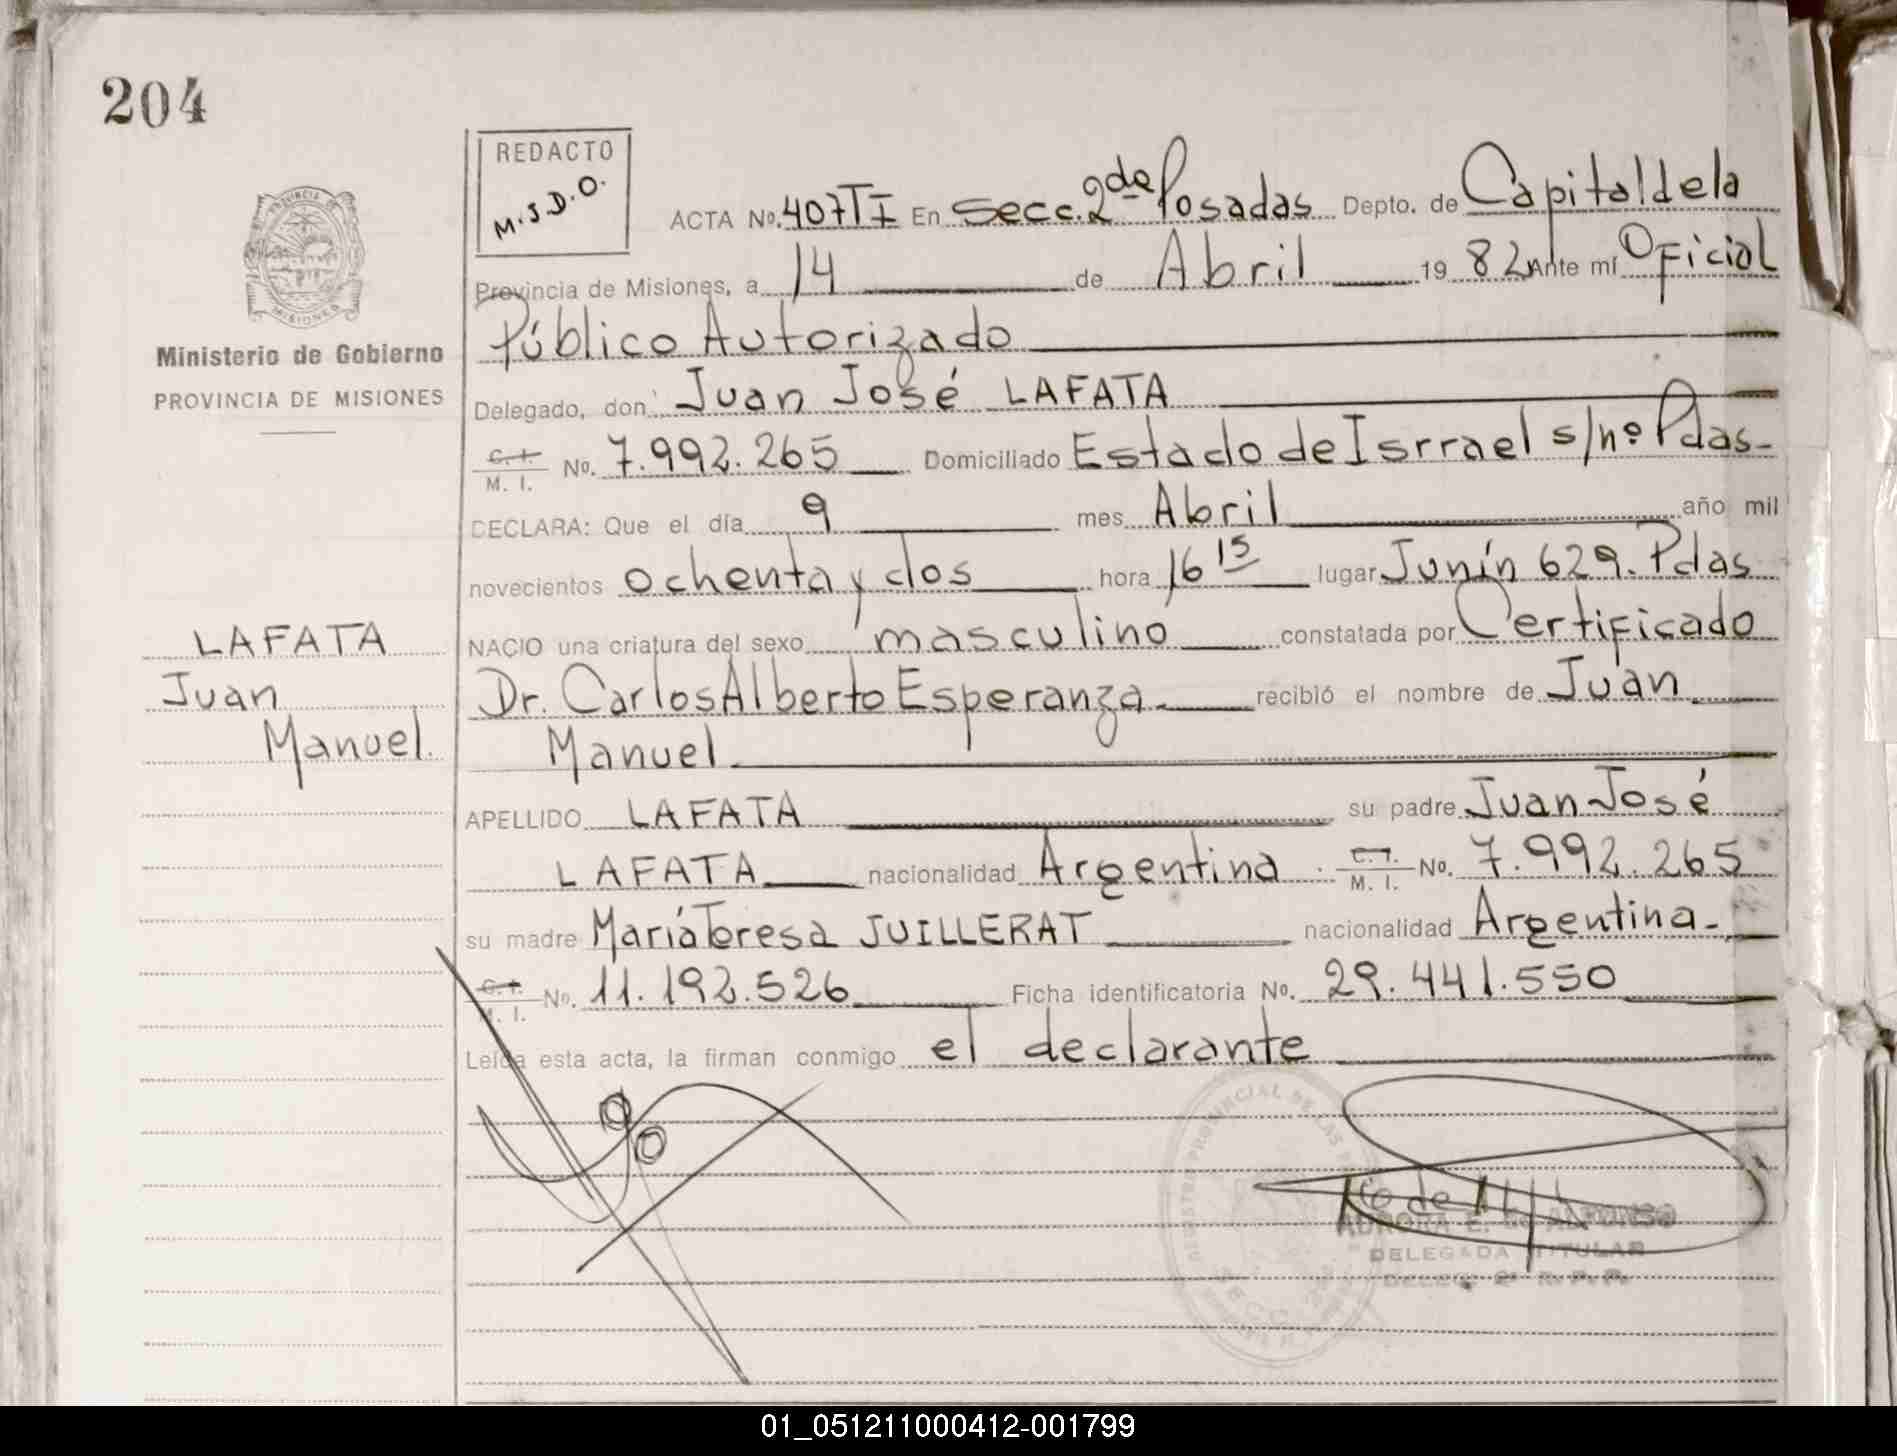 204
REDACTO
M.S.D.O.
PROVINCIA DE
MISIONES
Ministerio de Gobierno
PROVINCIA DE MISIONES
LAFATA
Juan
Manuel.
ACTA No. 407TI En Secc. 2da Posadas Depto. de Capital de la
Provincia de Misiones, a 14 de Abril 1982 Ante mí Oficial
Público Autorizado
Delegado, don Juan José LAFATA
C. I. M. I. No. 7.992.265 Domiciliado Estado de Isrrael s/nº Pdas-
DECLARA: Que el día 9 mes Abril año mil
novecientos ochenta y dos hora 16 15 lugar Junín 629. Pdas
NACIO una criatura del sexo masculino constatada por Certificado
Dr. Carlos Alberto Esperanza. recibió el nombre de Juan
Manuel.
APELLIDO LAFATA su padre Juan José
LAFATA nacionalidad Argentina C. I. M. I. No. 7.992.265
su madre María Teresa JUILLERAT nacionalidad Argentina.-
C. I. M. I. No. 11.192.526 Ficha identificatoria No. 29.441.550
Leída esta acta, la firman conmigo el declarante
AURORA E. de ALFONSO
DELEGADA TITULAR
DELEG. 2ª R. P. P.
01_051211000412-001799